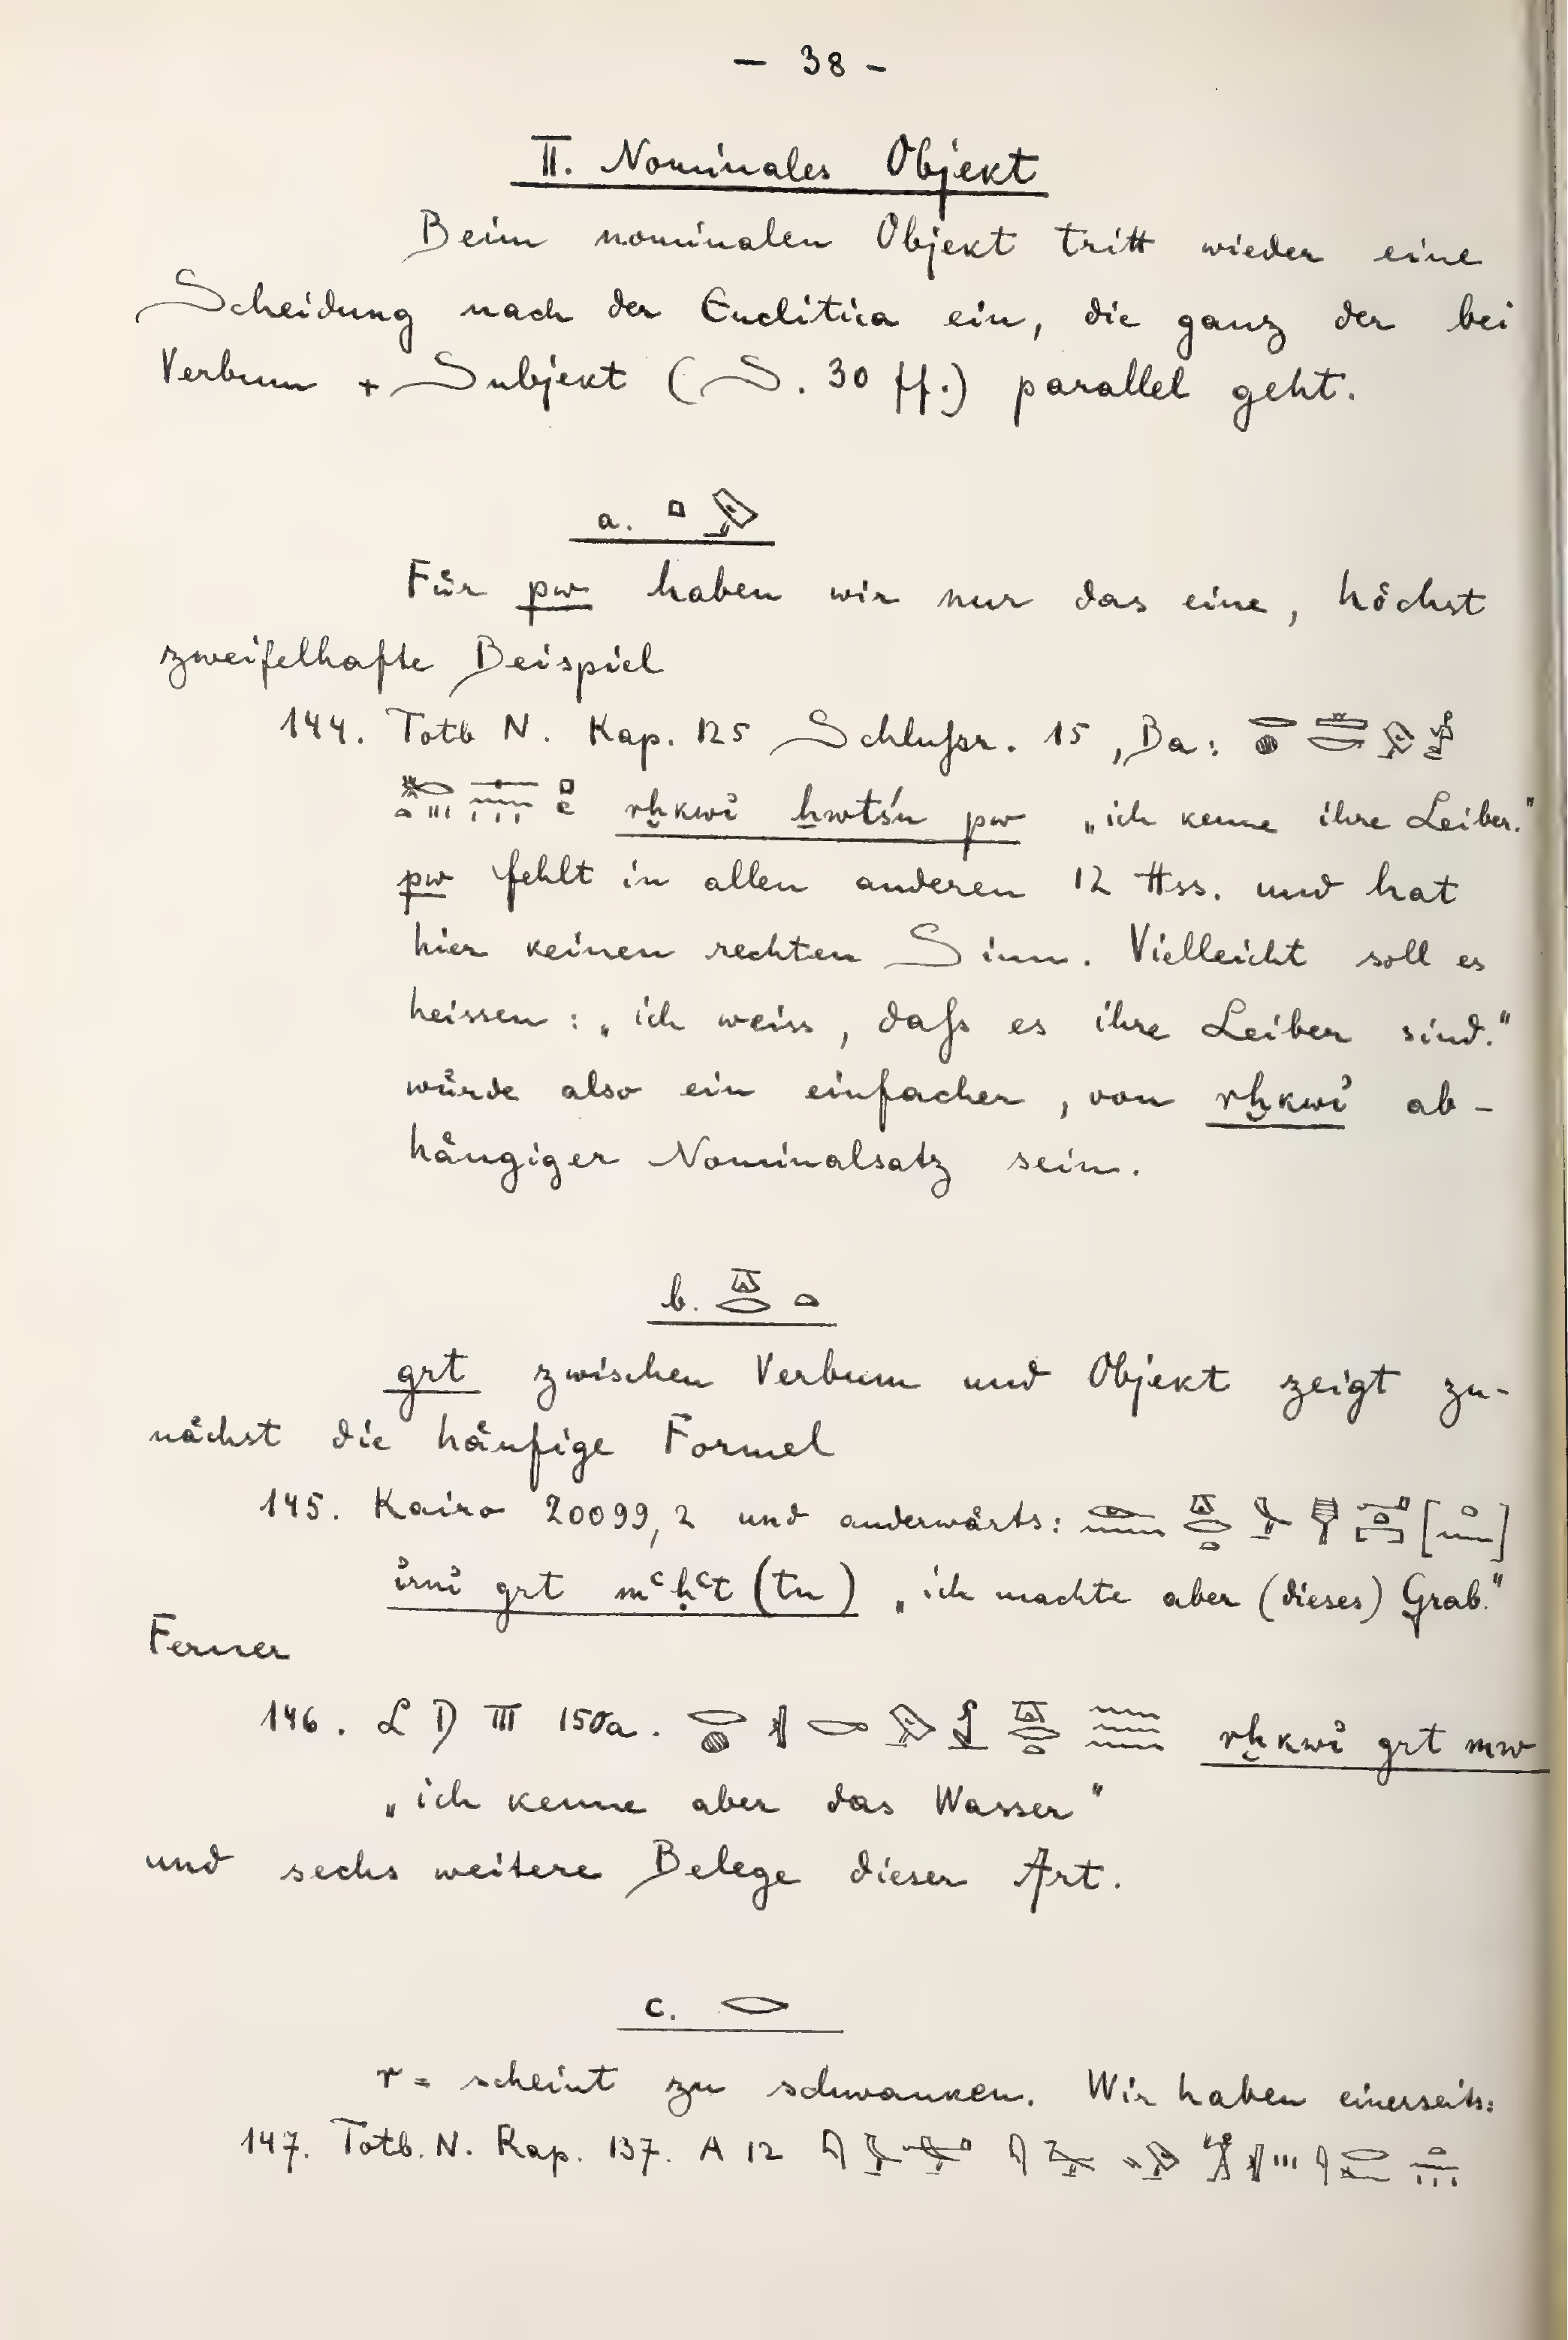 — 38 -
II. Nominales Objekt
Beim nominalen Objekt tritt wieder eine
Scheidung nach der Enclitica ein, die ganz der bei
Verbum + Subjekt (S. 30 ff.) parallel geht.
a.
Für pw haben wir nur das eine, höchst
zweifelhafte Beispiel
144. Totb N. Kap. 125 Schlußr. 15, Ba:
rḫkwỉ ẖwtśn pw „ich kenne ihre Leiber."
pw fehlt in allen anderen 12 Hss. und hat
hier keinen rechten Sinn. Vielleicht soll es
heissen: „ich weiss, daß es ihre Leiber sind."
würde also ein einfacher, von rḫkwỉ ab-
hängiger Nominalsatz sein.
b.
grt zwischen Verbum und Objekt zeigt zu-
nächst die häufige Formel
145. Kairo 20099, 2 und anderwärts:
ỉrnỉ grt mꜥḥꜥt (tn) „ich machte aber (dieses) Grab."
Ferner
146. L D III 150a. rḫkwỉ grt mw
„ich kenne aber das Wasser"
und sechs weitere Belege dieser Art.
c.
r = scheint zu schwanken. Wir haben einerseits:
147. Totb. N. Kap. 137. A 12